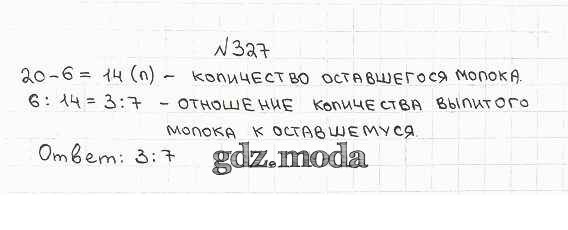 №327
20-6 = 14 (л) - количество оставшегося молока.
6 : 14 = 3:7 - отношение количества выпитого
молока к оставшемуся.
Ответ: 3:7
gdz.moda